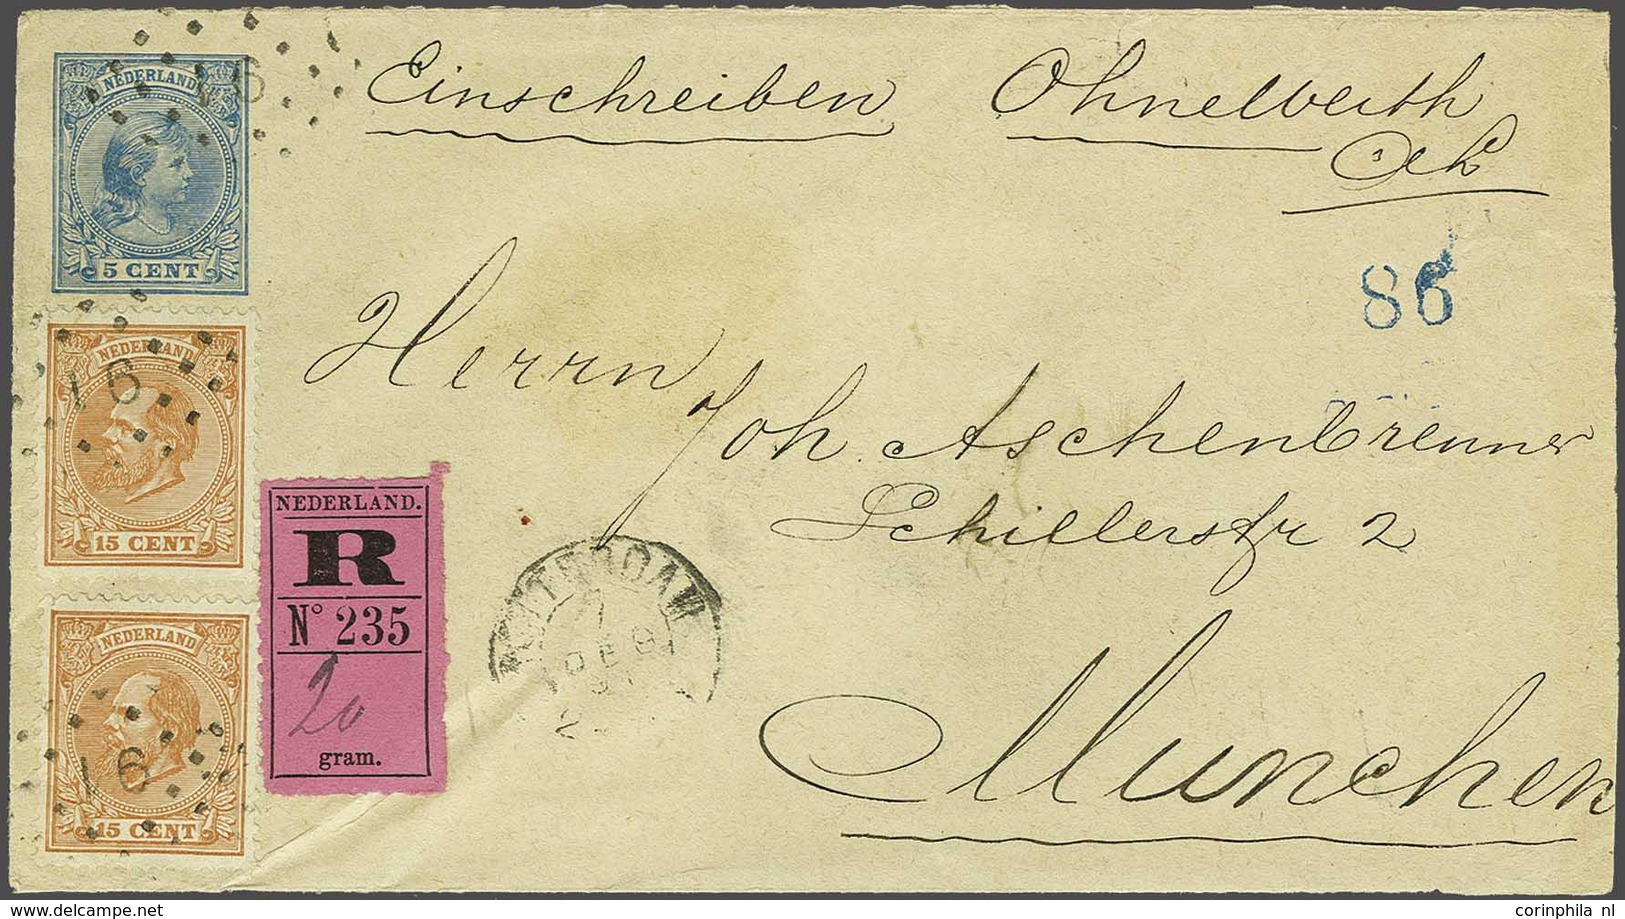 Einschreiben Ohnelwerth
NEDERLAND
5 CENT
16
86
Herrn
NEDERLAND
16
15 CENT
Joh. Aschenbrenner
NEDERLAND.
R
N° 235
20
gram.
Schillerstr 2
NEDERLAND
16
15 CENT
DEC
Munchen
© www.delcampe.net
corinphila_nl